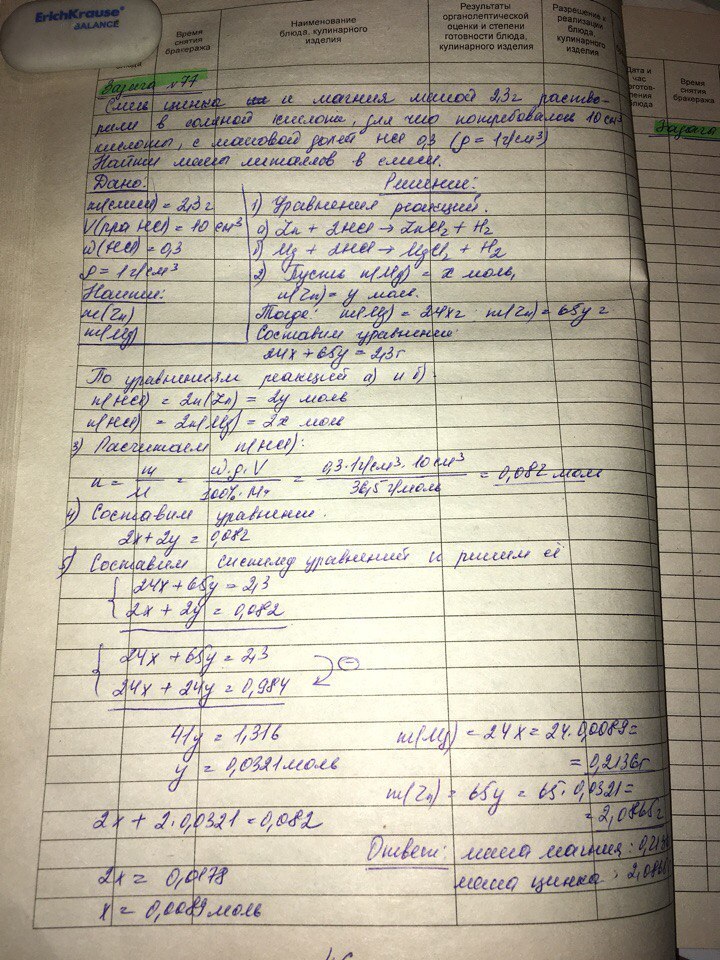 ErichKrause®
BALANCE
Время
снятия
бракеража
Наименование
блюда, кулинарного
изделия
Результаты
органолептической
оценки и степени
готовности блюда,
кулинарного изделия
Разрешение к
реализации
блюда,
кулинарного
изделия
Дата и
час
Время
снятия
бракеража
Задача №77
Задача
Смесь цинка и магния массой 2,3 г раство-
рили в соляной кислоте, для чего потребовалось 10 см³
кислоты, с массовой долей HCl 0,3 (ρ = 1г/см³)
Найти массы металлов в смеси.
Дано:
m(смеси) = 2,3 г
V(р-ра HCl) = 10 см³
ω(HCl) = 0,3
ρ = 1г/см³
Найти:
m(Zn)
m(Mg)
Решение:
1) Уравнения реакций.
а) Zn + 2HCl → ZnCl₂ + H₂
б) Mg + 2HCl → MgCl₂ + H₂
2) Пусть n(Mg) = x моль,
n(Zn) = y моль.
Тогда: m(Mg) = 24x г m(Zn) = 65y г
Составим уравнение:
24x + 65y = 2,3г
По уравнениям реакций а) и б):
n(HCl) = 2n(Zn) = 2y моль
n(HCl) = 2n(Mg) = 2x моль
3) Расчитаем n(HCl):
n = m/M = ω·ρ·V/100%·Mr = 0,3·1г/см³·10 см³/36,5 г/моль = 0,082 моль
4) Составим уравнение.
2x + 2y = 0,082
5) Составим систему уравнений и решим её
{ 24x + 65y = 2,3
2x + 2y = 0,082
{ 24x + 65y = 2,3
24x + 24y = 0,984
41y = 1,316
y = 0,0321 моль
2x + 2·0,0321 = 0,082
2x = 0,0178
x = 0,0089 моль
m(Mg) = 24x = 24·0,0089 =
= 0,2136г
m(Zn) = 65y = 65·0,0321 =
= 2,0865г
Ответ: масса магния:
масса цинка: